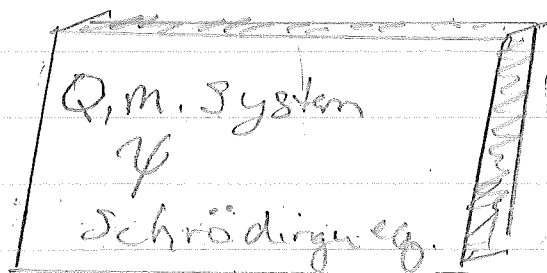 Q.M. System
ψ
Schrödinger eq.